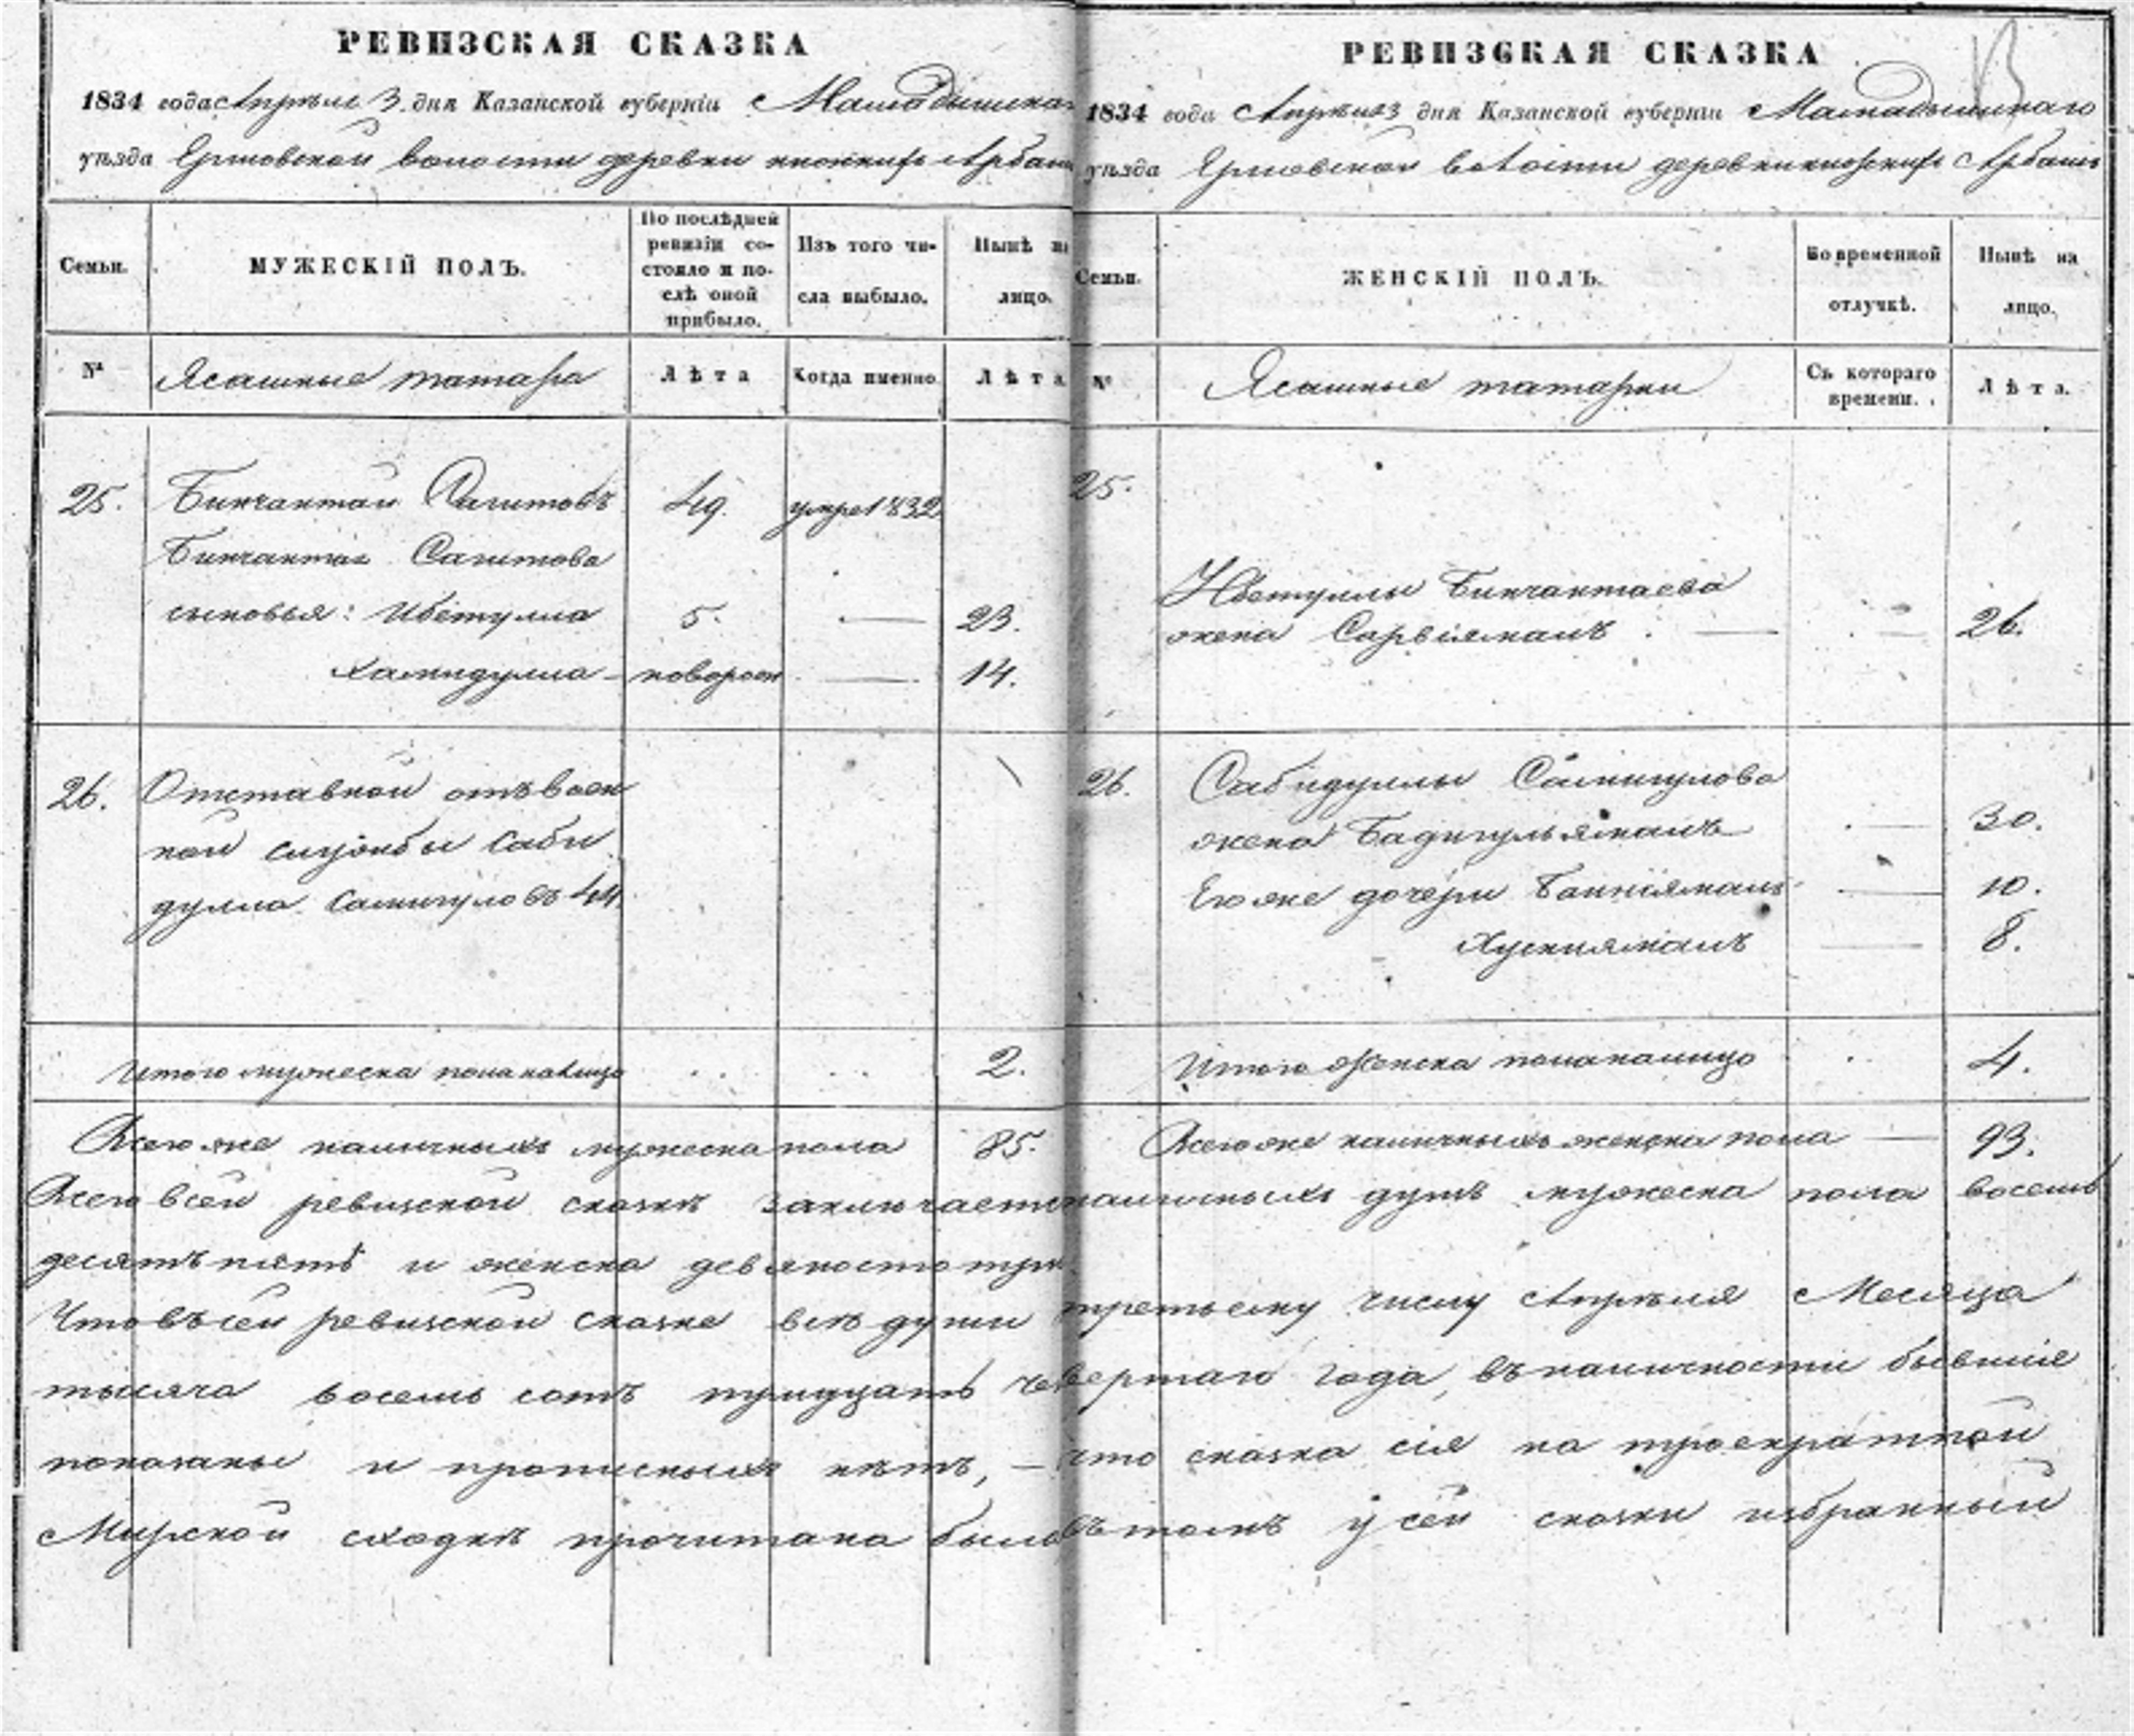 РЕВИЗСКАЯ СКАЗКА
1834 года Апреля 3 дня Казанской губернiи Мамадышска
уѣзда волости деревки нижнихъ Арбаш
Семьи.
МУЖЕСКIЙ ПОЛЪ.
По послѣдней ревизiи состояло и послѣ оной прибыло.
Изъ того числа выбыло.
Нынѣ на лицо.
№
Ясашные татара
Лѣта
Когда именно
Лѣта
25. Бикчантаи Сагитовъ 49. умре 1832
Бикчантая Сагитова
сыновья: Ибетулла 5. — 23.
Хамидулла - новорож — 14.
26. Отставной отъ воен
ной службы Саби
дулла Самигуловъ 44
Итого мужеска пола налицо 2.
Всего же наличныхъ мужеска пола 85.
РЕВИЗСКАЯ СКАЗКА
1834 года Апреля 3 дня Казанской губернiи Мамадышскаго
уѣзда волости деревки нижнихъ Арбашъ
Семьи.
ЖЕНСКIЙ ПОЛЪ.
Во временной отлучкѣ.
Нынѣ на лицо.
№
Ясашные татарки
Съ котораго времени.
Лѣта.
25.
Ибетуллы Бикчантаева
жена Сарвiямалъ — 26.
26. Сабидуллы Самигулова
жена Бадигульямалъ — 30.
Его же дочери — 10.
Хуснiямалъ — 8.
Итого женска пола налицо 4.
Всего же наличныхъ женска пола — 93.
Всего в сей ревизской сказкѣ заключаетс наличныхъ душъ мужеска пола восемь
десятъ пять и женска девяносто три
Что въ сей ревизской сказке всѣ души третьему числу Апрѣля Месяца
тысяча восемь сотъ тридцать четвертаго года, въ наличности бывшiе
показаны и прописныхъ нѣтъ, — что сказка сiя на троекратной
Мирской сходкѣ прочитана была въ томъ у сей сказки избранный